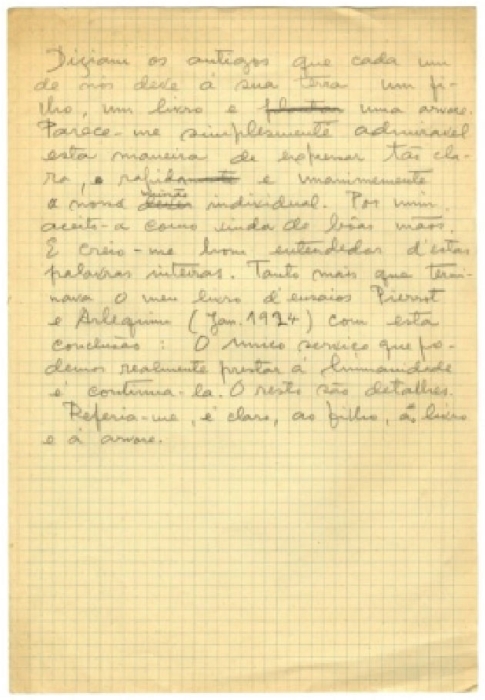 Diziam os antigos que cada um
de nós deve á sua terra um fi-
lho, um livro e plantar uma arvore.
Parece-me simplesmente admiravel
esta maneira de exprimir tão cla-
ra, e rapida e unanimemente
a nossa missão individual. Por mim,
aceito-a como vinda de bôas mãos.
E creio-me bom entendedor d'estas
palavras inteiras. Tanto mais que termi-
nava o meu livro d'ensaios Pierrot
e Arlequim (Jan. 1924) com esta
conclusão: O unico serviço que po-
demos realmente prestar á humanidade
é continua-la. O resto são detalhes.
Referia-me, é claro, ao filho, ao livro
e á arvore.